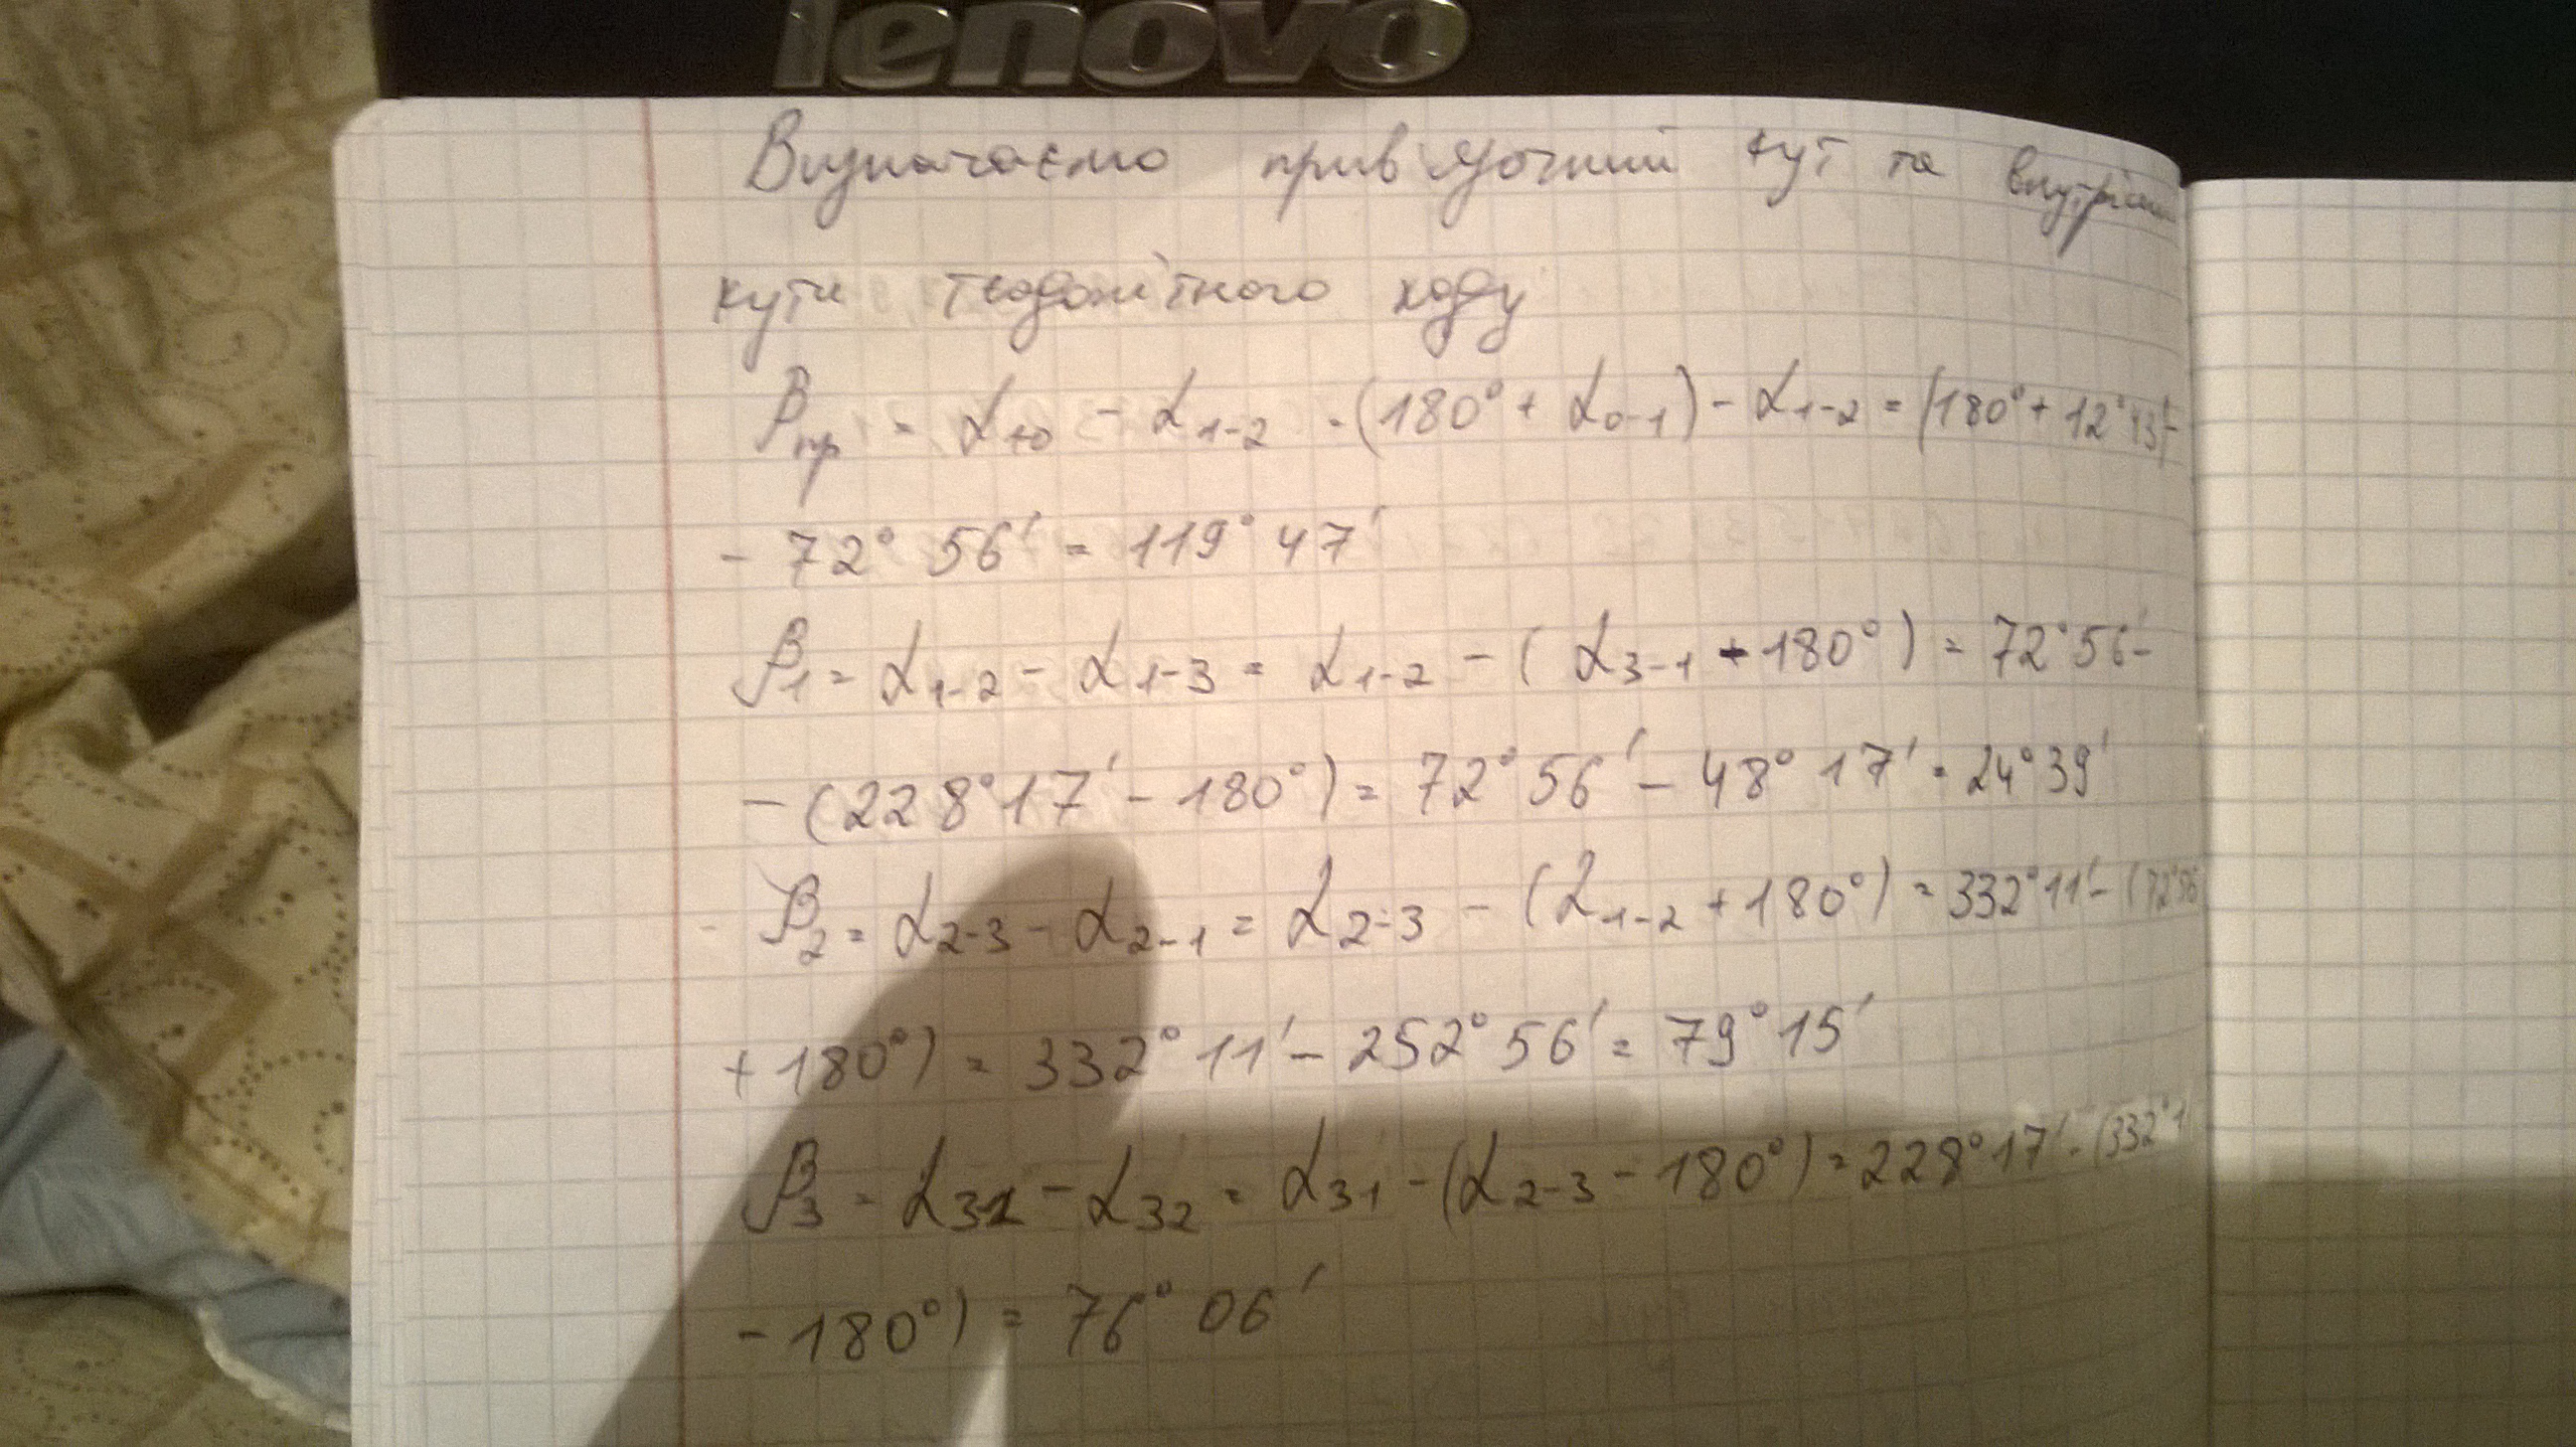 lenovo
Визначаємо прив'язочний кут та внутрішні
кути теодолітного ходу
βпр = α10 - α1-2 = (180° + α0-1) - α1-2 = (180° + 12°43') -
- 72° 56' = 119° 47'
β1 = α1-2 - α1-3 = α1-2 - (α3-1 - 180°) = 72°56' -
- (228°17' - 180°) = 72°56' - 48°17' = 24°39'
β2 = α2-3 - α2-1 = α2-3 - (α1-2 + 180°) = 332°11' - (72°56'
+ 180°) = 332°11' - 252°56' = 79°15'
β3 = α31 - α32 = α31 - (α2-3 - 180°) = 228°17' - (332°11'
- 180°) = 76°06'